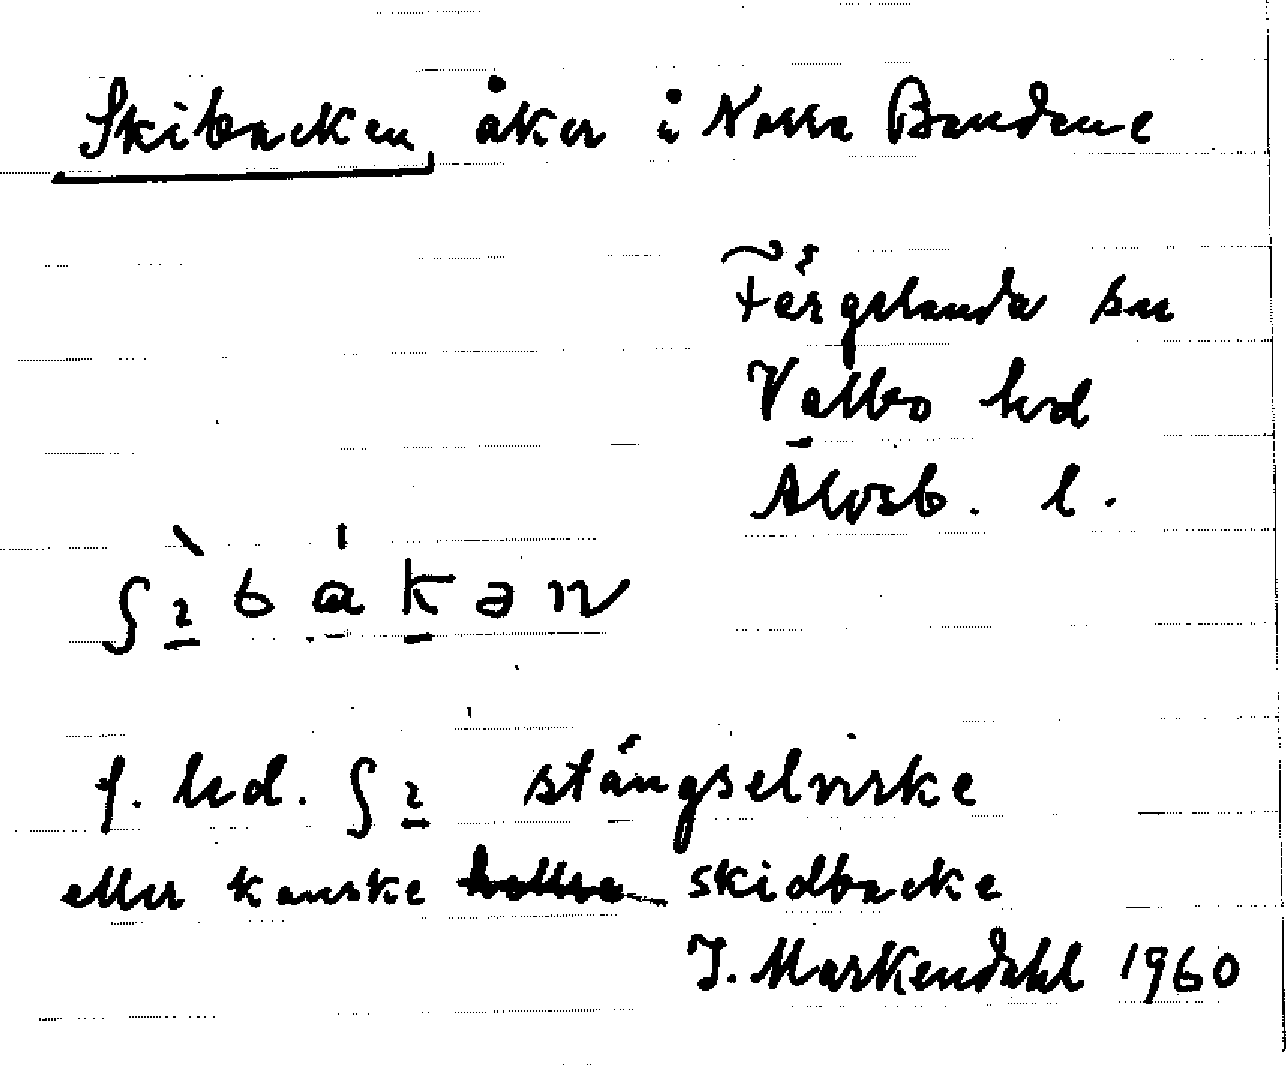 Skibacken, åker i Norra Bandene
Färgelanda sn
Valbo hd
Älvsb. l.
ʃɪ̀bákən
f. led. ʃɪ stängselvirke
eller kanske skidbacke
J. Markendahl 1960